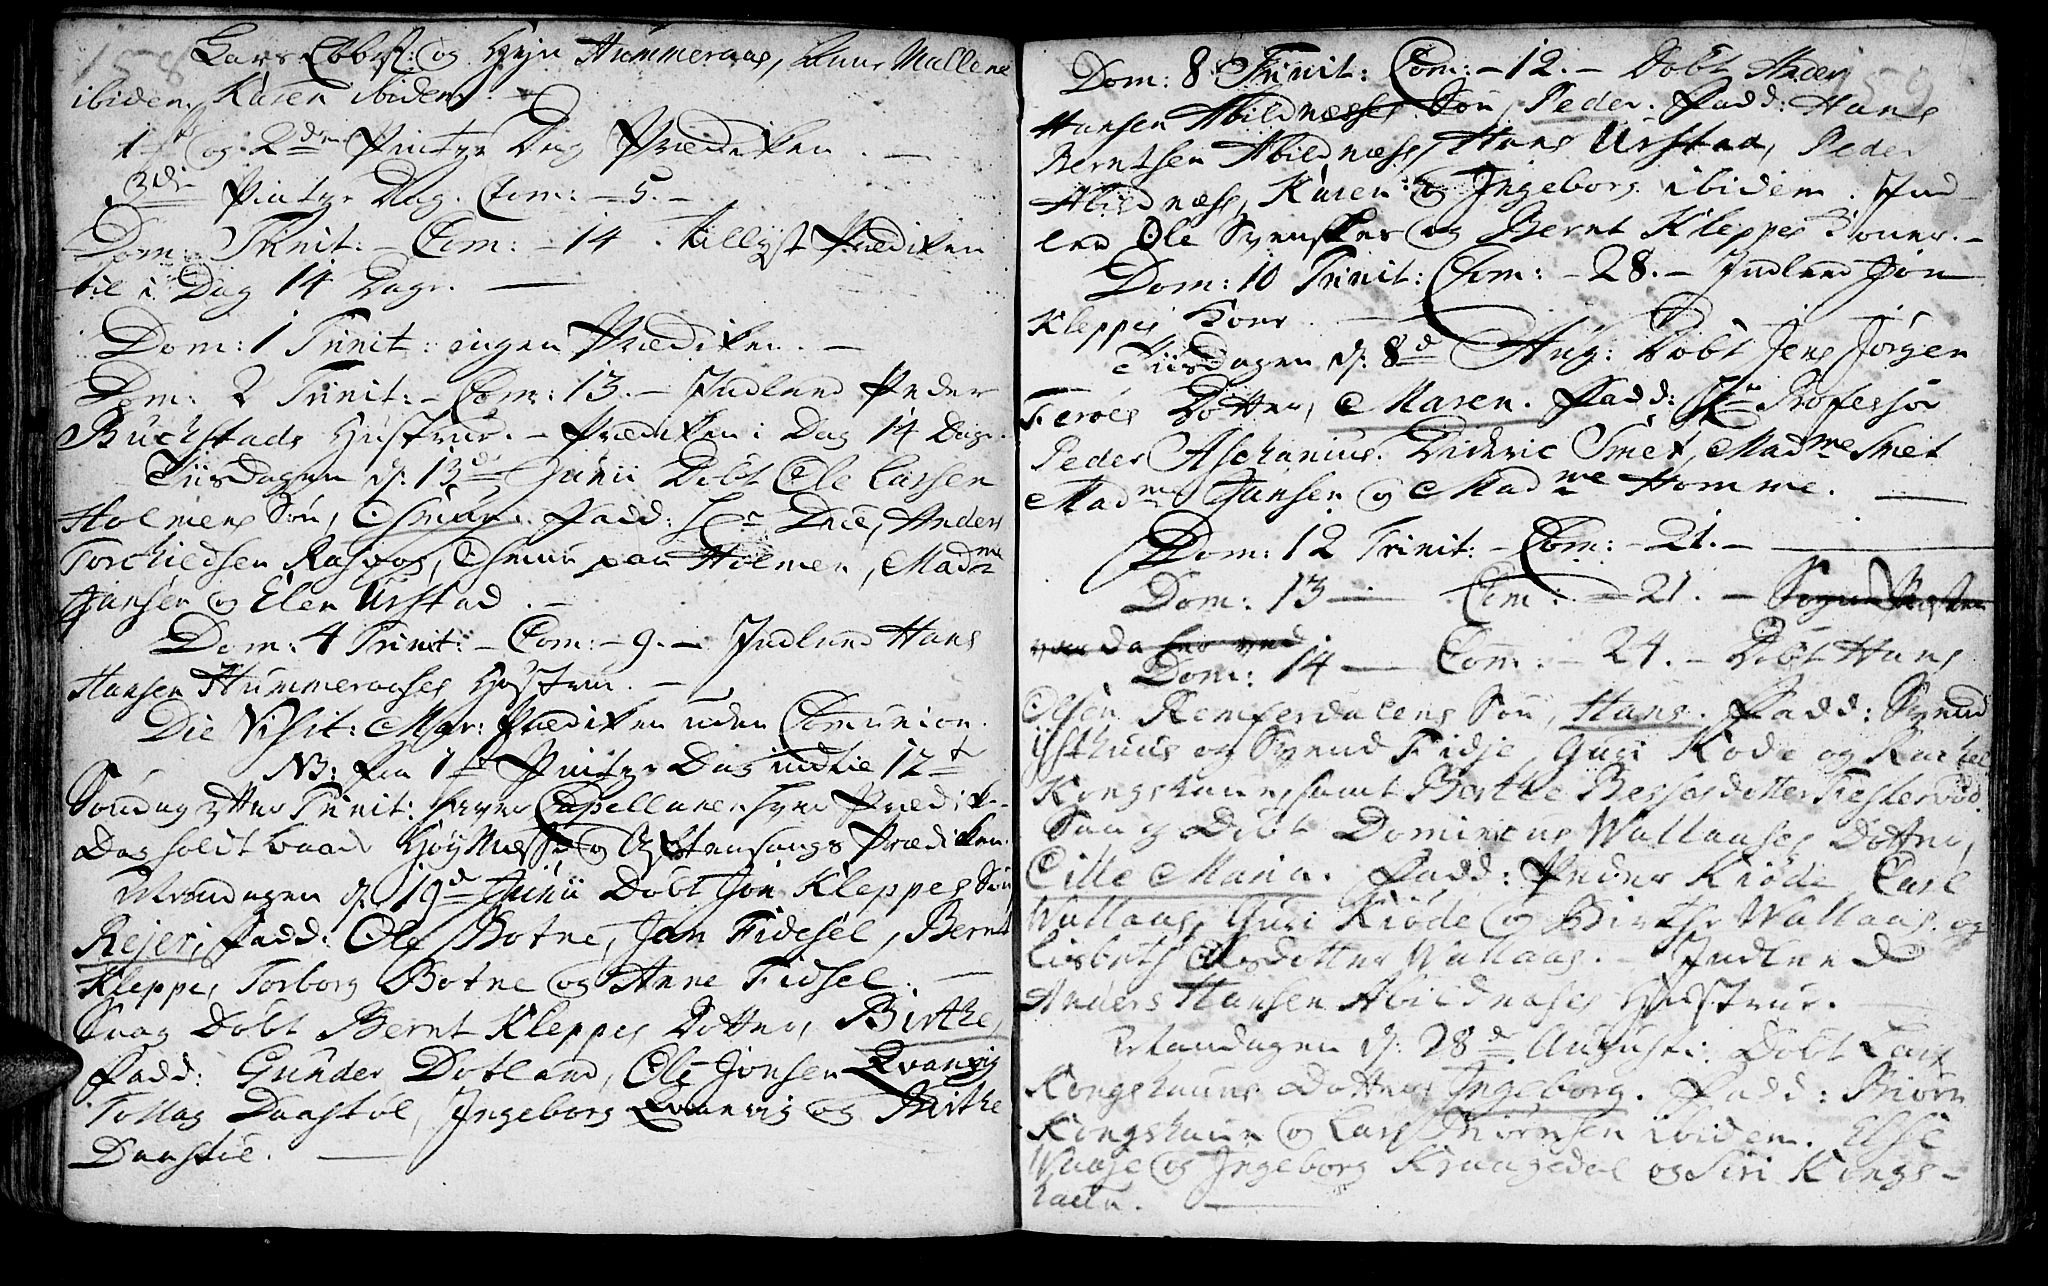 158
Lars Ebbes: og Gyri Hummeraas, Anne Mallene
ibidem, Karen ibidem. —
1ste og 2den Pintze Dag Prædiken. —
3die Pintze Dag. Com: – 5. –
Dom: Trinit: – Com: – 14. tillyst Prædiken
til i Dag 14 Dage. —
Dom: 1 Trinit: ingen Prædiken. —
Dom: 2 Trinit: – Com: 13. – Indleed Peder
Buchstads Hustrue. – Prædiken i Dag 14 Dage.
Tiisdagen d: 13de Junii Døbt Ole Larsen
Holmens Søn, Fadd: Hr Due, Anders
Torchiedsen Rasvog, paa Holmen, Madme
Jansen og Elen Urstad. –
Dom: 4 Trinit: – Com: – 9. – Indleed Hans
Hansen Hummeraases Hustrue. –
Die Visit: Mar: Prædiken uden Comunion.
NB: Paa 1ste Pintze Dag indtil 12te
Søndag efter Trinit: haver Capellanen hver Prædike-
Dag holdt baade Høy Messe og Aftensangs Prædiken.
Mandagen d: 19de Junii Døbt Jon Kleppes Søn
Rejer; Fadd: Ole Botne, Jan Fidsel, Bernt
Kleppe, Torborg Botne og Anne Fidsel. —
Samme Dag Døbt Bernt Kleppes Dotter, Birthe,
Fadd: Gunder Dotland, Ole Jonsen Qvanvig
Tollag Daastøl, Ingeborg Qvanvig og Birthe
Daastøl. —
159
Dom: 8 Trinit: Com: – 12. – Døbt Anders
Hansen Abildnæsses Søn, Peder. Fadd: Hans
Berntsen Abildnæss, Hans Urstad, Peder
Abildnæss, Karen og Ingeborg ibidem. Ind-
leed Ole Svenskes og Bernt Kleppes Koner. –
Dom: 10 Trinit: Com: – 28. – Indleed Jon
Kleppes Kone. —
Tiisdagen d: 8de Aug: Døbt Jens Jørgen
Ferøes Dotter, Maren. Fadd: Hr Professor
Peder Aschanius. Dideric Smet, Madme Smet
Madme Jansen og Madme Homme. —
Dom: 12 Trinit: – Com: – 21. – —
Dom: 13 — Com: – 21. –
Dom: 14 — Com: – 24. – Døbt Hans
Olsen Remserdalens Søn, Hans. Fadd: Svend
Østhuus og Svend Fidje, Guri Kiøde og Rachel
Kongshaun, samt Berthe
Samme Dag Døbt Dominicus Wallaases Dotter,
Cille Maria. Fadd: Peder Kiøde, Carl
Wallaas, Guri Kiøde og Birthe Wallaas. og
Lisbeth Olsdotter Wallaas. – Indleed
Anders Hansen Abildnæses Hustrue. –
Mandagen d: 28de Augusti. Døbt Lars
Kongshauns Dotter Ingeborg. Fadd: Biørn
Kongshaun og Lars Biørnsen ibidem. Else
Waaje og Ingeborg Kraagedal og Siri Kongs-
haun. —